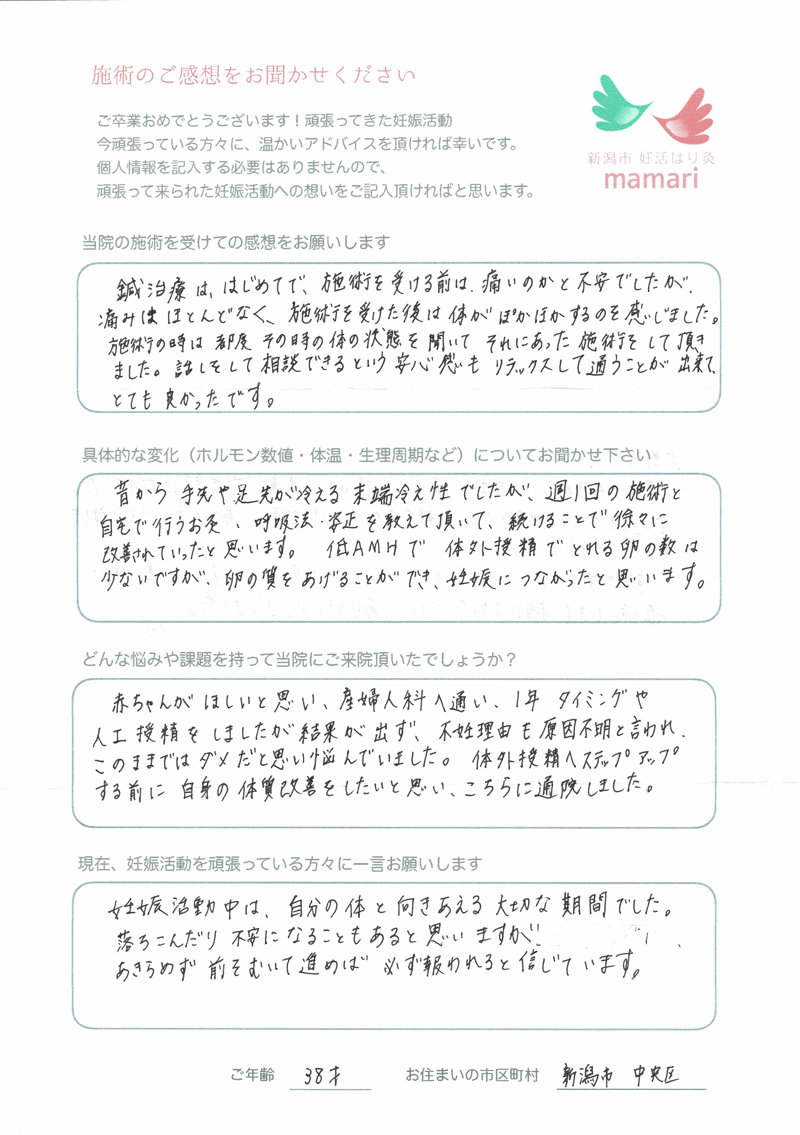 施術のご感想をお聞かせください
ご卒業おめでとうございます！頑張ってきた妊娠活動
今頑張っている方々に、温かいアドバイスを頂ければ幸いです。
個人情報を記入する必要はありませんので、
頑張って来られた妊娠活動への想いをご記入頂ければと思います。
新潟市 妊活はり灸
mamari
当院の施術を受けての感想をお願いします
鍼治療は、はじめてで、施術を受ける前は、痛いのかと不安でしたが、
痛みはほとんどなく、施術を受けた後は体がぽかぽかするのを感じました。
施術の時は都度その時の体の状態を聞いてそれにあった施術をして頂き
ました。話しをして相談できるという安心感もリラックスして通うことが出来て、
とても良かったです。
具体的な変化（ホルモン数値・体温・生理周期など）についてお聞かせ下さい
昔から手先や足先が冷える末端冷え性でしたが、週1回の施術と
自宅で行うお灸、呼吸法・姿正を教えて頂いて、続けることで徐々に
改善されていったと思います。低AMHで体外授精でとれる卵の数は
少ないですが、卵の質をあげることができ、妊娠につながったと思います。
どんな悩みや課題を持って当院にご来院頂いたでしょうか？
赤ちゃんがほしいと思い、産婦人科へ通い、1年タイミングや
人工授精をしましたが結果が出ず、不妊理由も原因不明と言われ、
このままではダメだと思い悩んでいました。体外授精へステップアップ
する前に自身の体質改善をしたいと思い、こちらに通院しました。
現在、妊娠活動を頑張っている方々に一言お願いします
妊娠活動中は、自分の体と向きあえる大切な期間でした。
落ちこんだり不安になることもあると思いますが、
あきらめず前をむいて進めば必ず報われると信じています。
ご年齢 38才 お住まいの市区町村 新潟市 中央区